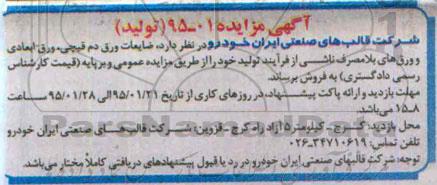 آگهی مزایده ۰۱-۹۵ (تولید)
شرکت قالب های صنعتی ایران خودرو در نظر دارد، ضایعات ورق دم قیچی، ورق ابعادی
و ورق های بلامصرف ناشی از فرآیند تولید خود را از طریق مزایده عمومی و بر پایه (قیمت کارشناس
رسمی دادگستری) به فروش برساند.
مهلت بازدید و ارائه پاکت پیشنهاد، در روزهای کاری از تاریخ ۹۵/۰۱/۲۱ الی ۹۵/۰۱/۲۸ ساعت
۸-۱۵ می باشد.
محل بازدید: کرج- کیلومتر ۱۵ آزاد راه کرج - قزوین: شرکت قالب های صنعتی ایران خودرو
تلفن تماس: ۳۴۷۱۰۶۱۹-۰۲۶
توجه: شرکت قالبهای صنعتی ایران خودرو در رد یا قبول پیشنهادهای دریافتی کاملاً مختار می باشد.